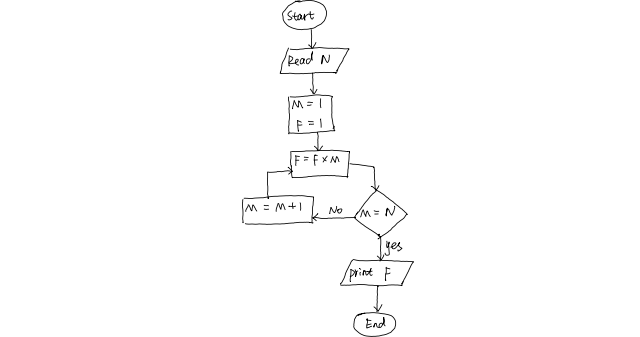 Start
Read N
M = 1
F = 1
F = F × M
M = N
No
M = M+1
yes
print F
End